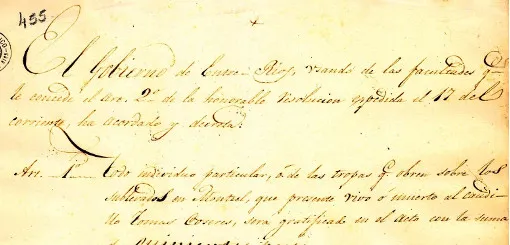 455
El Gobierno de Entre-Rios, usando de las facultades q.e
le concede el art. 2.o de la honorable resolucion expedida el 17 del
corriente, ha acordado y decreta:
Art. 1.o Todo individuo particular, ó de las tropas q.e obren sobre los
sublevados en Montiel, que presente vivo ó muerto al caudi-
llo Tomas Coseres, será gratificado en el acto con la suma
de quinientos pesos